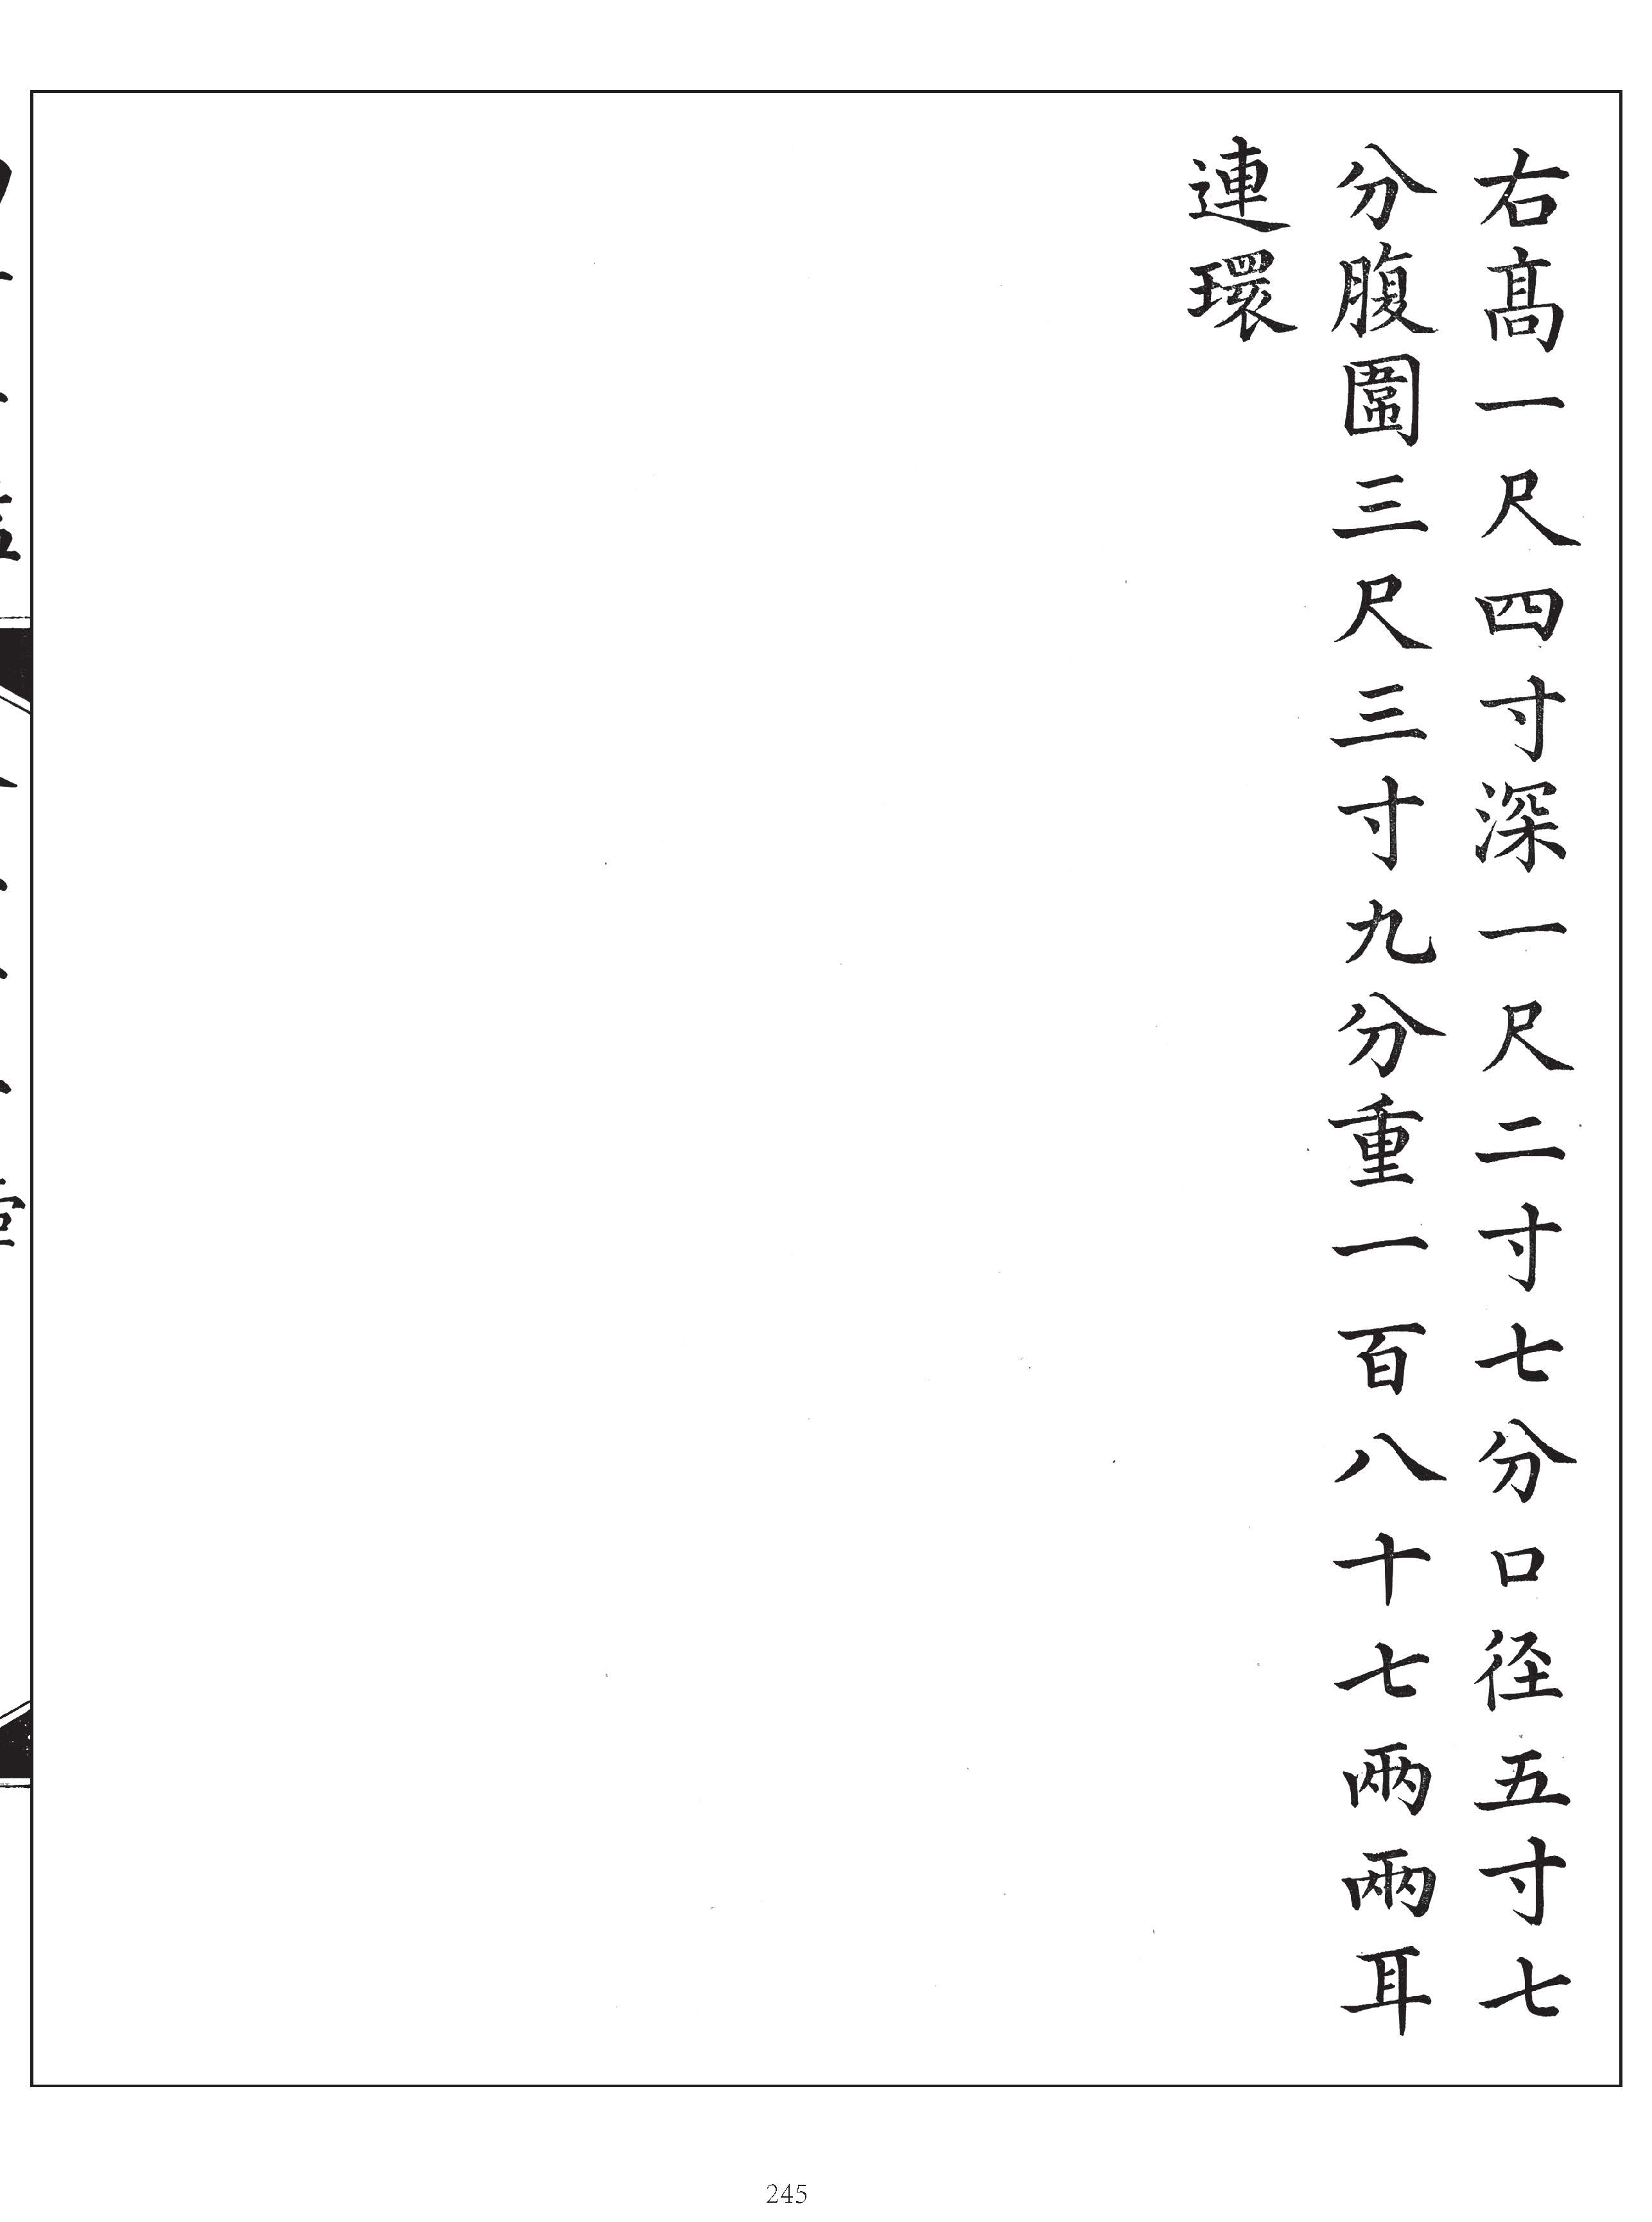 右髙一尺四寸深一尺二寸七分口径五寸七
分腹圍三尺三寸九分重一百八十七兩兩耳
連環
245